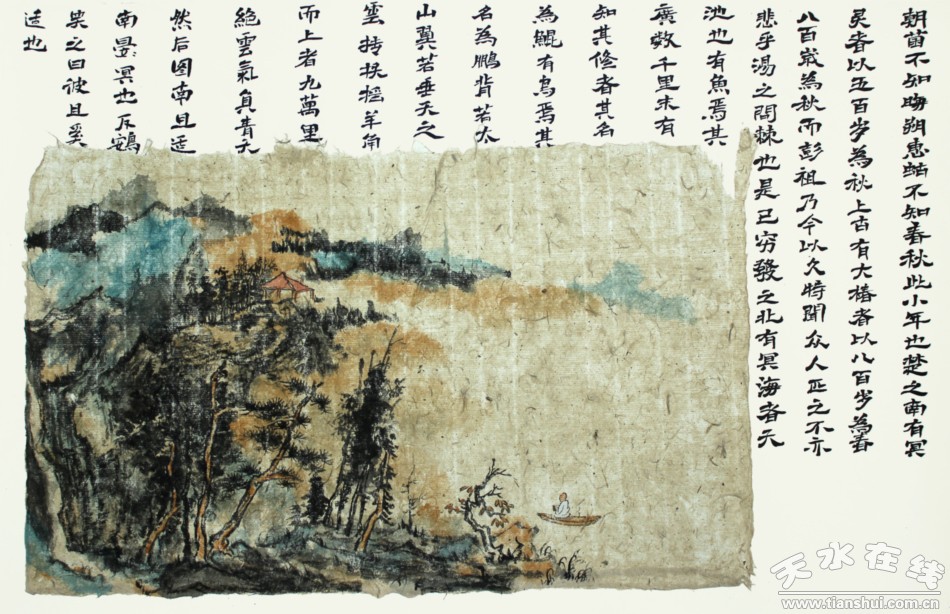 朝菌不知晦朔惠蛄不知春秋此小年也楚之南有冥
灵者以五百岁為秋上古有大椿者以八百岁為春
八百嵗為秋而彭祖乃今以久特聞众人匹之不亦
悲乎湯之問棘也是已穷發之北有冥海者天
池也有魚焉其
廣数千里未有
知其修者其名
為鯤有鳥焉其
名為鵬背若太
山翼若垂天之
雲摶扶摇羊角
而上者九萬里
絕雲氣負青天
然后图南且适
南冥也斥鴳
笑之曰彼且奚
适也
天水在线
www.tianshui.com.cn